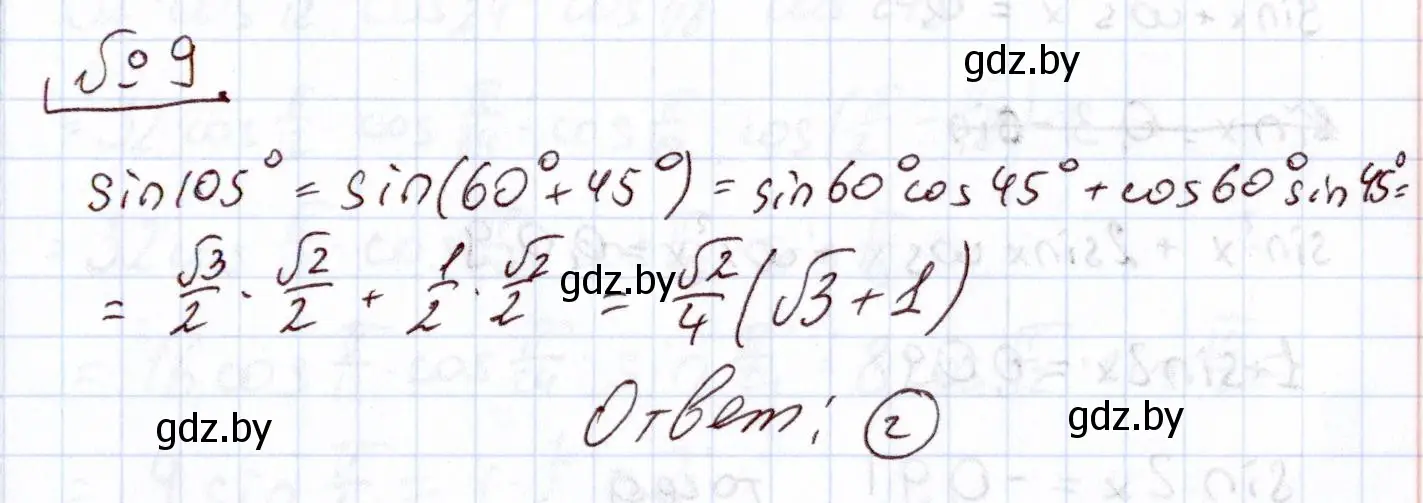 № 9
gdz.by
sin105° = sin(60° + 45°) = sin60°cos45° + cos60°sin45° =
= √3/2 · √2/2 + 1/2 · √2/2 = √2/4 (√3 + 1)
gdz.by
Ответ: г
gdz.by
gdz.by